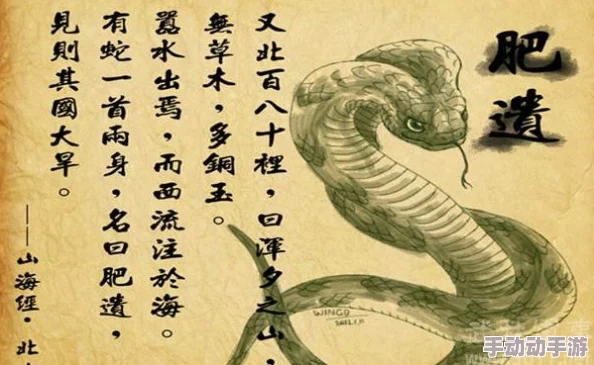 肥遺
又北百八十裡，曰渾夕之山，
無草木，多銅玉。
囂水出焉，而西流注於海。
有蛇一首兩身，名曰肥遺，
見則其國大旱。
——山海經·北
WINGD
手动动手游